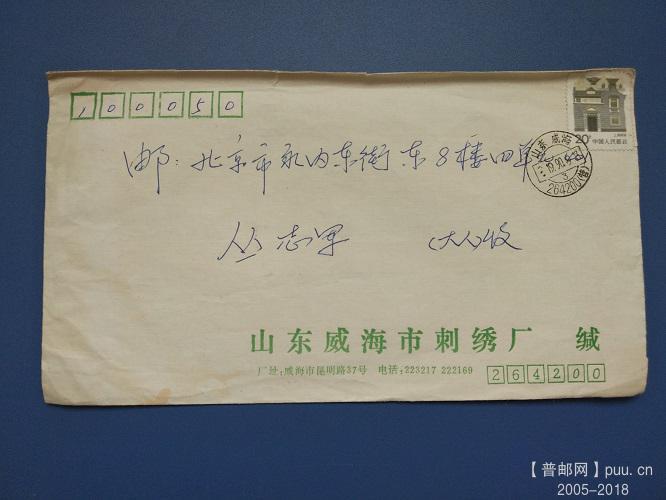 100050
20分
上海民居
中国人民邮政
邮: 北京市永内东街东8楼四单
山东 威海
264200(营)
3
丛志军 (大人)收
山东威海市刺绣厂 缄
厂址:威海市昆明路37号 电话:223217 222169
264200
【普邮网】puu.cn
2005-2018